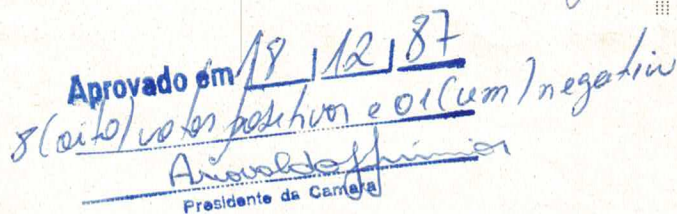 Aprovado em 18 / 12 / 87
8 (oito) votos positivos e 01 (um) negativo
Presidente da Camara